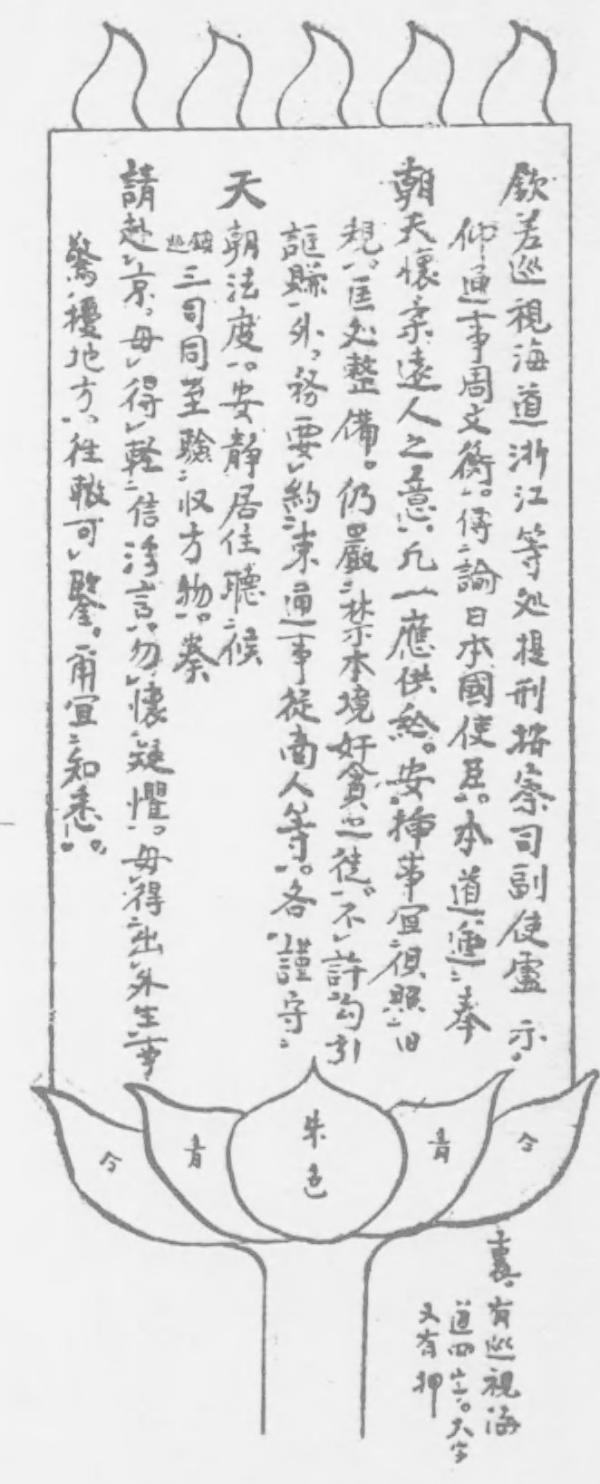 欽差巡視海道浙江等处提刑按察司副使盧 示
仰通事周文衡傳諭日本國使臣本道遵奉
朝天懷柔遠人之意凡一應供給安揷事宜俱照旧
規区处整備仍嚴禁本境奸貪之徒不許勾引
誆賺外務要約束通事從商人等各謹守
天
朝法度安靜居住聽候
鎮巡三司同至驗収方物奏
請赴京毋得輕信浮言勿懷疑懼毋得出外生事
驚擾地方往轍可鑒甭宜知悉
朱色
青
青
今
今
裏有巡視海
道四字大字
又有押